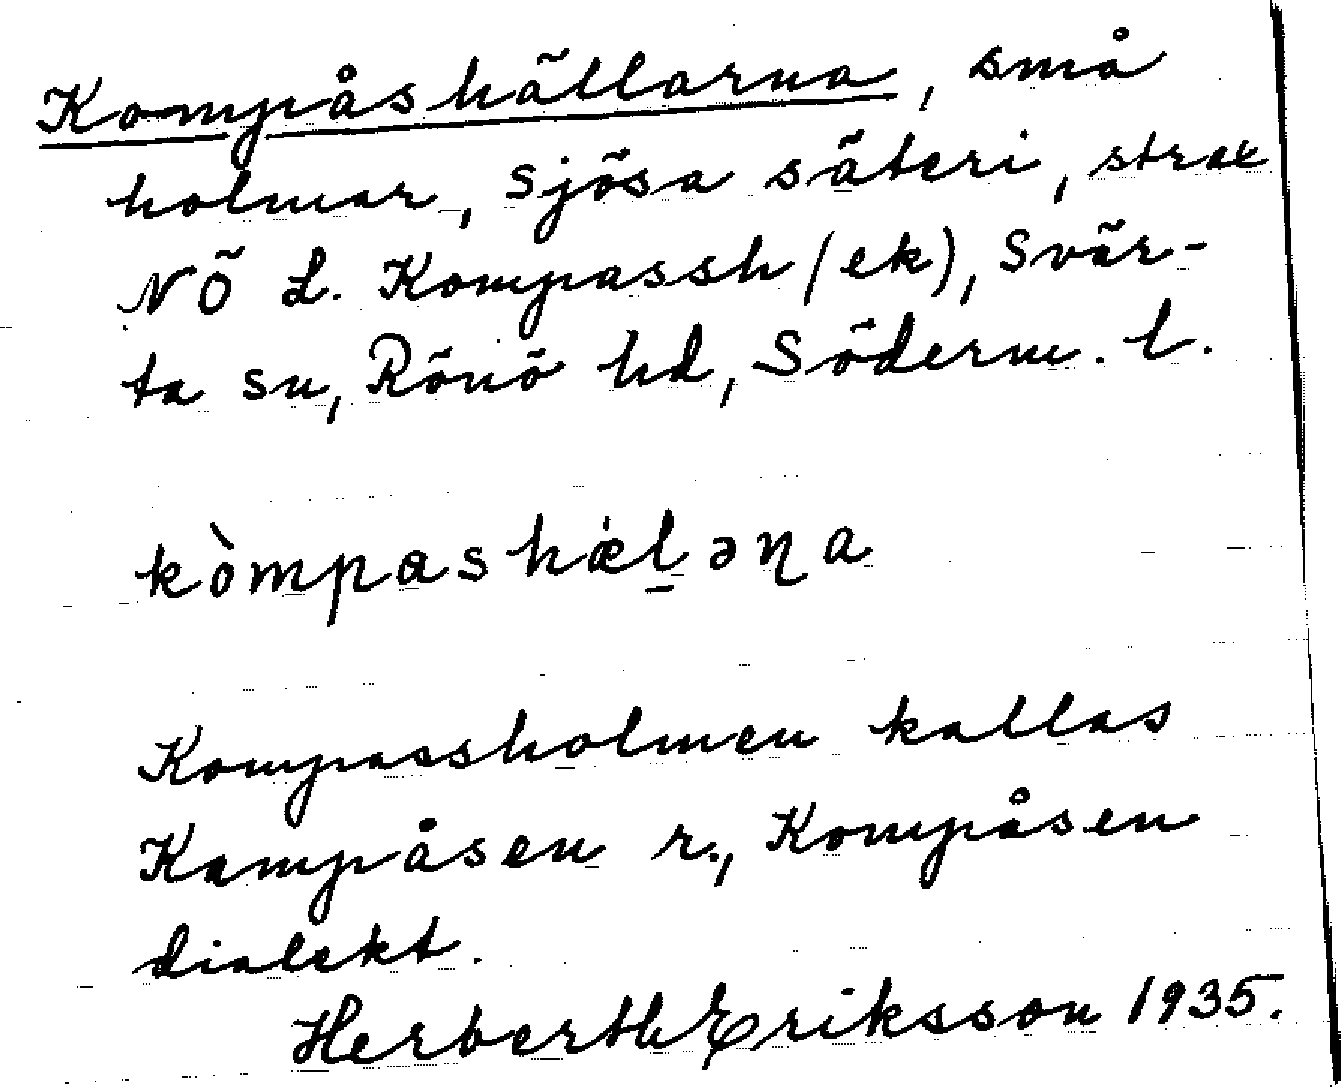 Kompåshällarna, små
holmar, Sjösa säteri, strax
NÖ L. Kompassh (ek), Svär-
ta sn, Rönö hd, Söderm. l.
kòmpashæ̀l̠əɳa
Kompassholmen kallas
Kampåsen r., Kompåsen
dialekt.
Herberth Eriksson 1935.